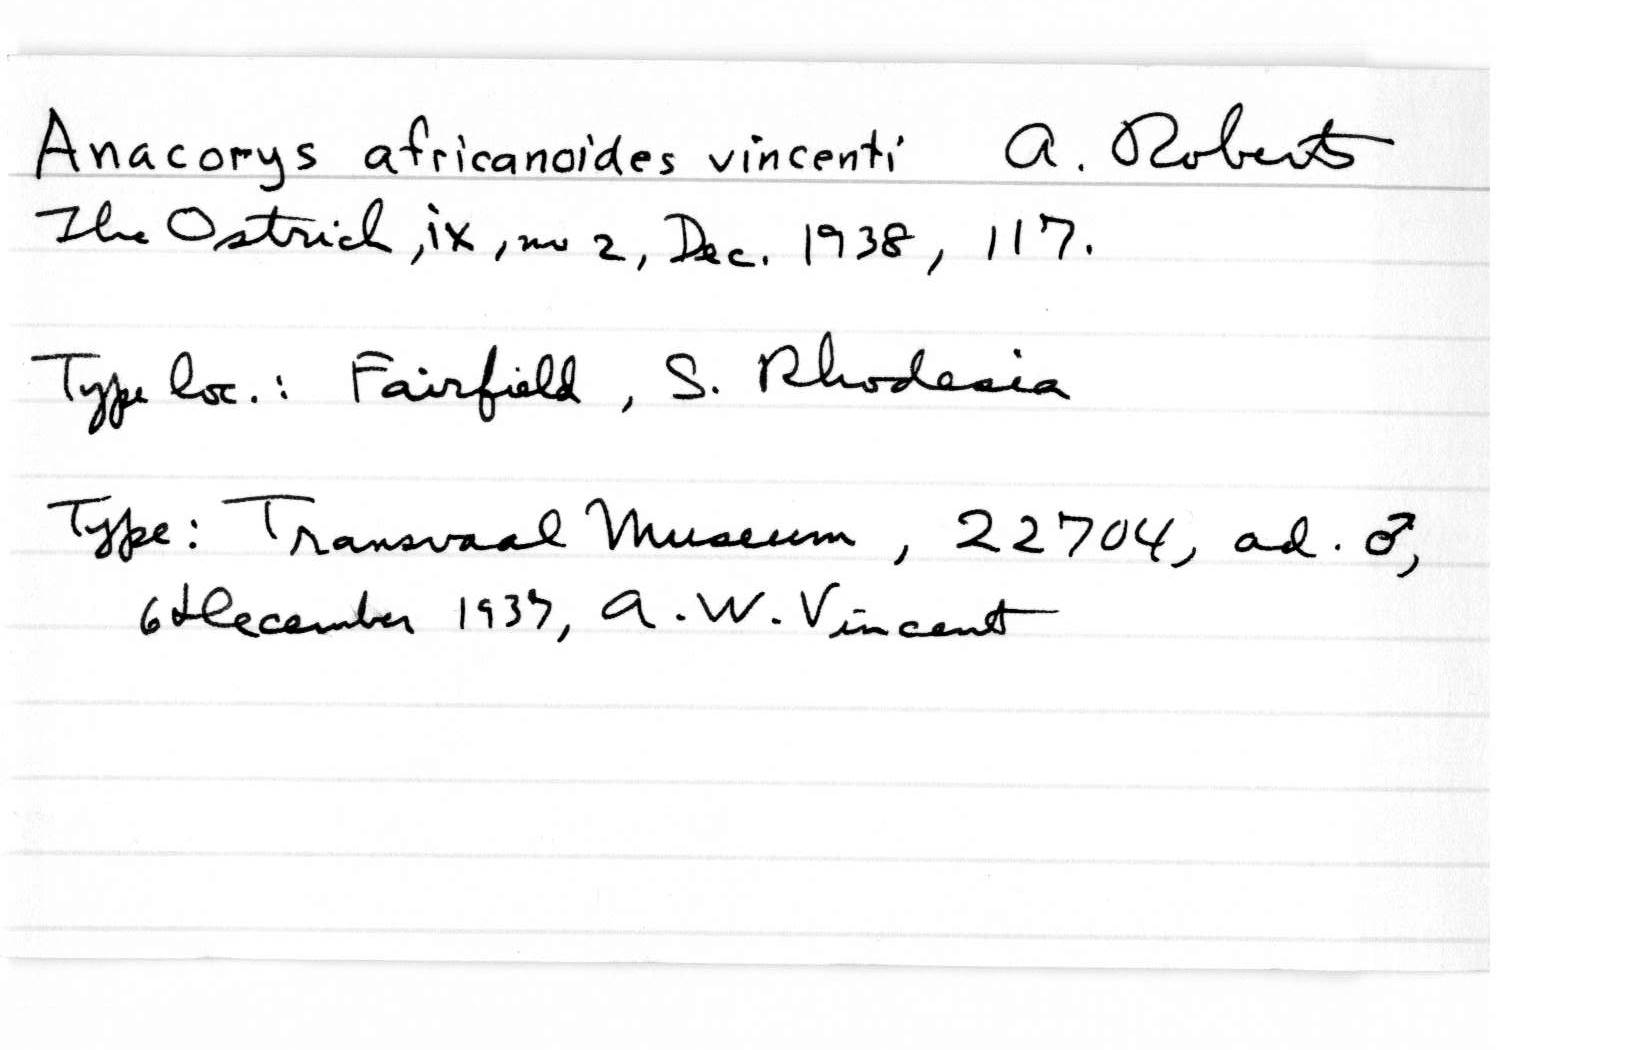 Anacorys africanoides vincenti A. Roberts
The Ostrich, ix, no 2, Dec. 1938, 117.
Type loc.: Fairfield, S. Rhodesia
Type: Transvaal Museum, 22704, ad. ♂,
6 December 1937, A. W. Vincent